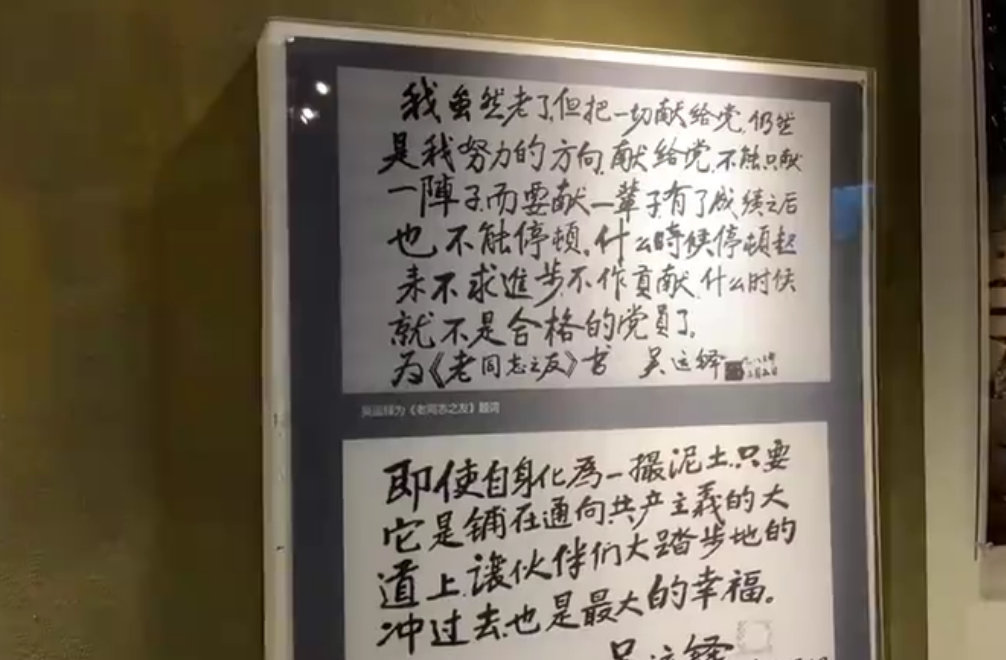 我虽然老了,但把一切献给党,仍然
是我努力的方向,献给党,不能只献
一陣子,而要献一辈子有了成绩之后
也不能停顿,什么時候停顿起
来不求進步,不作貢献,什么时候
就不是合格的党員了。
为《老同志之友》书 吴运铎
吴运铎为《老同志之友》题词
即使自身化為一撮泥土,只要
它是铺在通向共产主義的大
道上,讓伙伴们大踏步地的
冲过去,也是最大的幸福。
吴运铎